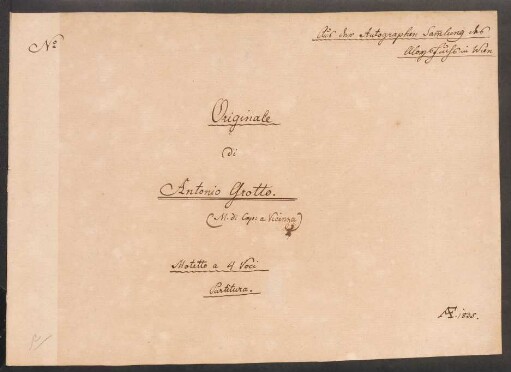 Nº
Aus der Autographen Samlung des
Aloys Fuchs in Wien
Originale
di
Antonio Grotto.
(M. di Cap: a Vicenza)
Motetto a 4 Voci
Partitura.